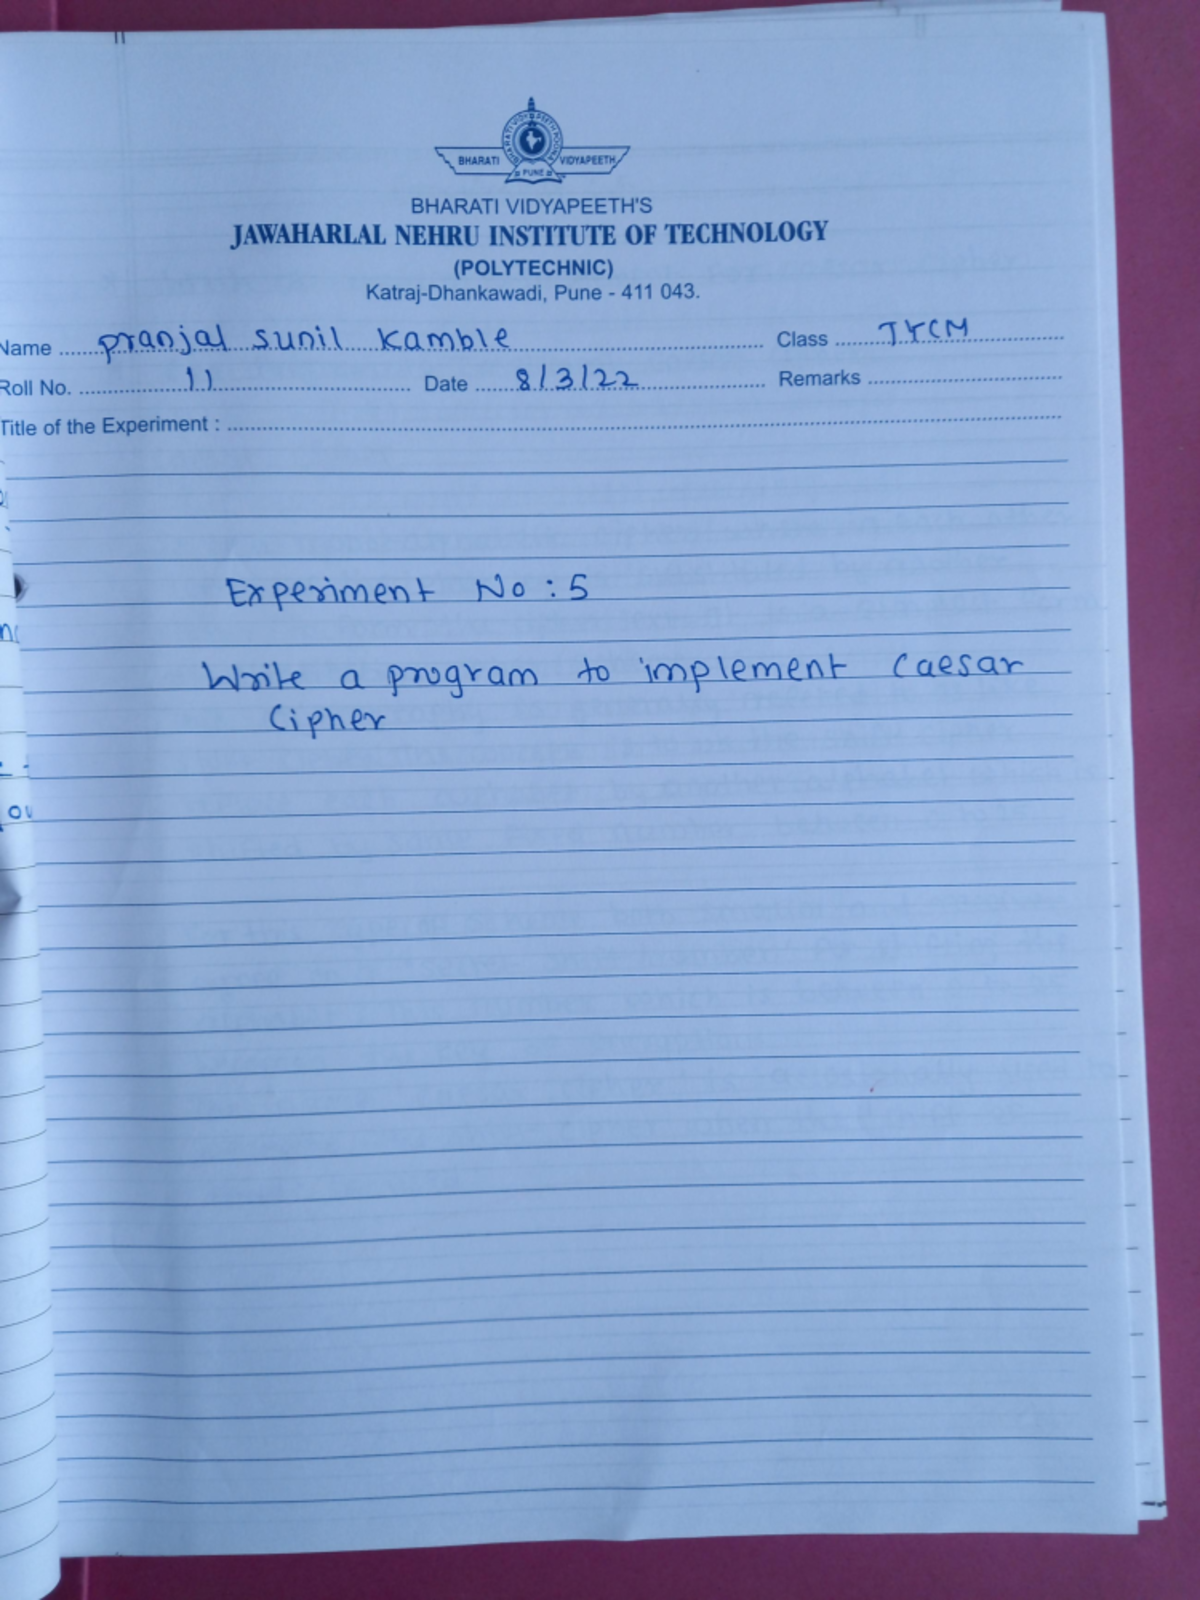 BHARATI VIDYAPEETH
BHARATI VIDYAPEETH POONA
PUNE
BHARATI VIDYAPEETH'S
JAWAHARLAL NEHRU INSTITUTE OF TECHNOLOGY
(POLYTECHNIC)
Katraj-Dhankawadi, Pune - 411 043.
Name pranjal sunil Kamble Class TYCM
Roll No. 11 Date 8/3/22 Remarks
Title of the Experiment :
Experiment No : 5
Write a program to implement Caesar
Cipher